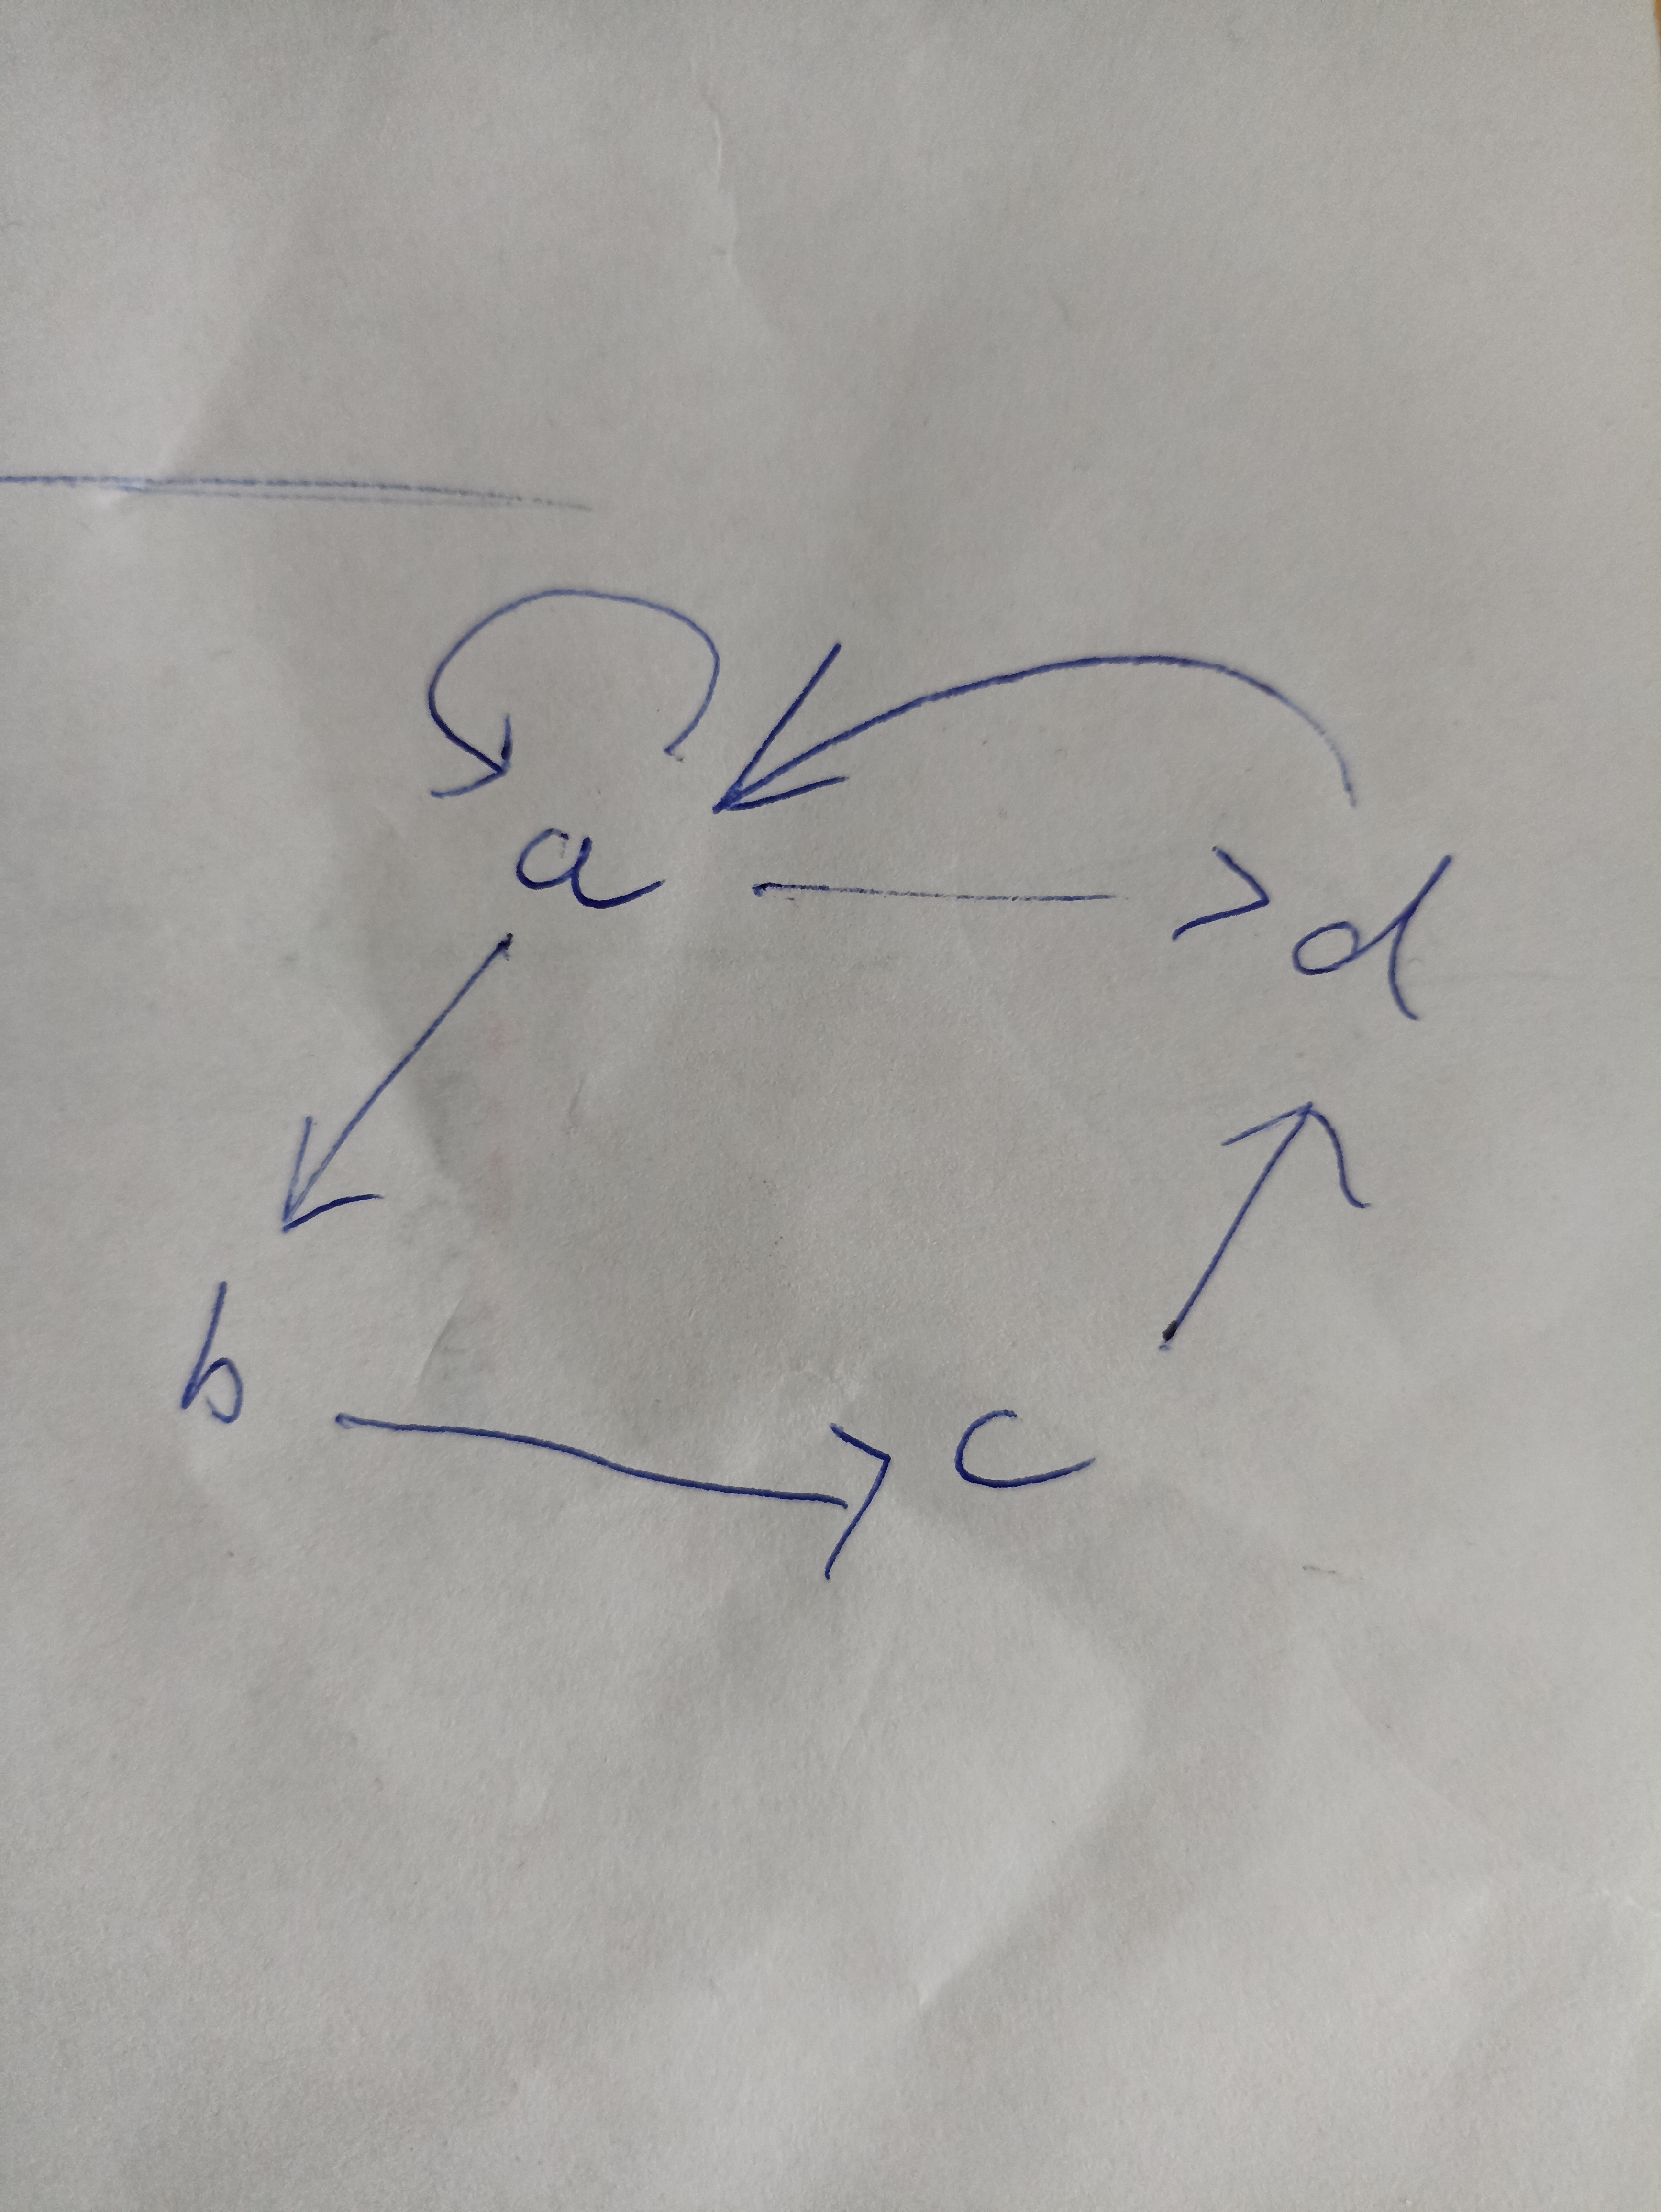 a d
b c